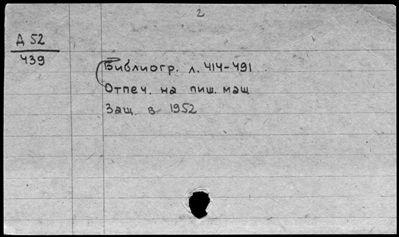 2
Д 52
439
Библиогр. л. 414-491
Отпеч. на пиш. маш
Защ. в 1952